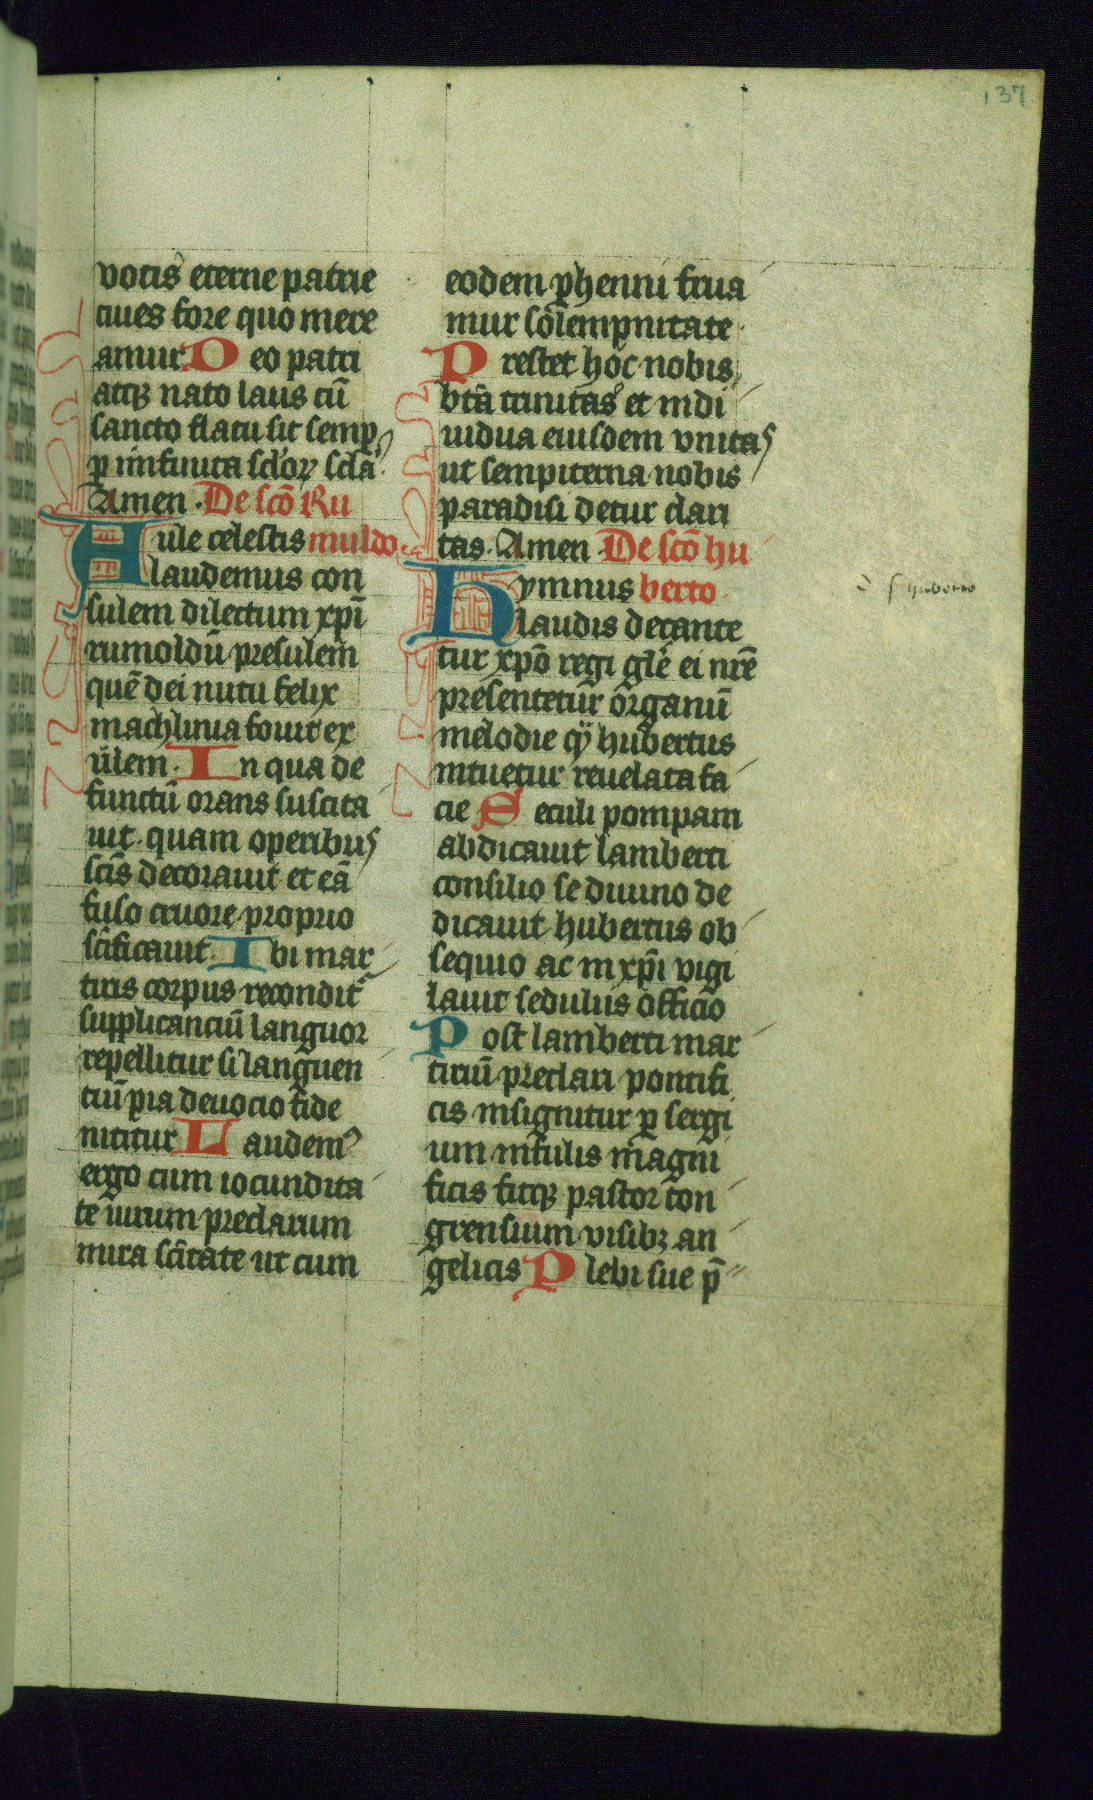 137
votis eterne patrie
ciues fore quo mere
amur. Deo patri
atqꝫ nato laus cū
sancto flatu sit semp
ꝑ infinita sclorꝝ scla
Amen. De scō Ru
Aule celestis muldo.
laudemus con
sulem dilectum xp̄i
rumoldū presulem
quē dei nutu felix
machlinia fouit ex
ulem. In qua de
functū orans suscita
uit. quam operibus
scīs decorauit et eā
fuso cruore proprio
scīficauit. Ibi mar
tiris corpus recondit᷑
supplicanciū languor
repellitur si languen
ciū pia deuocio fide
nititur Laudemꝰ
ergo cum iocundita
te uirum preclarum
mira scītate ut cum
eodem ꝑhenni frua
mur sōlempnitate
Prestet hoc nobis
btā trinitas et indi
uidua eiusdem vnitas
ut sempiterna nobis
paradisi detur clari
tas. Amen. De scō hu
Hymnus berto.
laudis decante
tur xp̄o regi glē ei nrē
presentetur organū
melodie qͥ hubertus
intuetur reuelata fa
cie Seculi pompam
abdicauit lamberti
consilio se diuino de
dicauit hubertus ob
sequio ac in xp̄i vigi
lauit sedulus officio
Post lamberti mar
tiriū preclari pontifi
cis insignitur ꝑ sergi
um infulis magni
ficis fitqꝫ pastor ton
grensium visibꝫ an
gelicis Plebi sue p̄